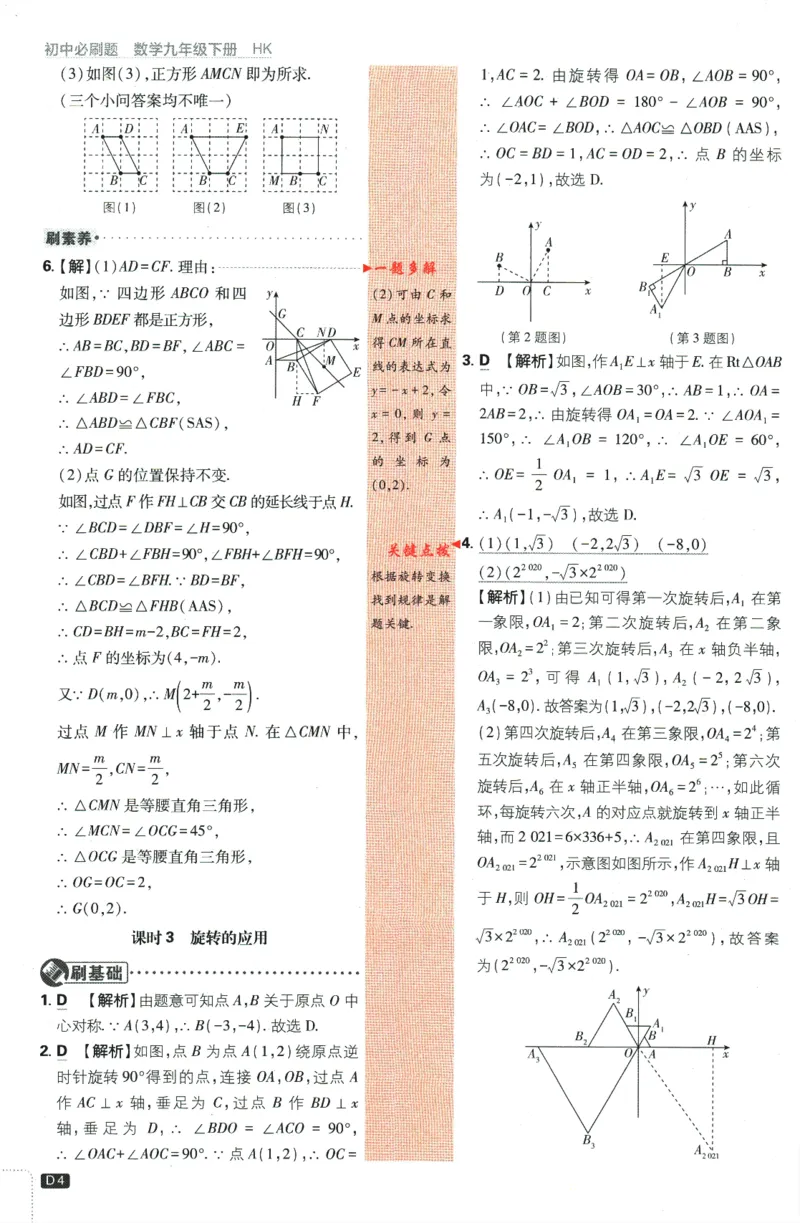 初中必刷题 数学九年级下册 HK
(3)如图(3),正方形 AMCN 即为所求.
(三个小问答案均不唯一)
A D A E A N
B C B C M B C
图(1) 图(2) 图(3)
刷素养
6.【解】(1)AD=CF. 理由:
如图,∵ 四边形 ABCO 和四
边形 BDEF 都是正方形,
∴ AB=BC,BD=BF,∠ABC=
∠FBD=90°,
∴ ∠ABD=∠FBC,
∴ △ABD≌△CBF(SAS),
∴ AD=CF.
y
G
C N D
O x
A B M
E
H F
(2)点 G 的位置保持不变.
如图,过点 F 作 FH⊥CB 交 CB 的延长线于点 H.
∵ ∠BCD=∠DBF=∠H=90°,
∴ ∠CBD+∠FBH=90°,∠FBH+∠BFH=90°,
∴ ∠CBD=∠BFH. ∵ BD=BF,
∴ △BCD≌△FHB(AAS),
∴ CD=BH=m-2,BC=FH=2,
∴ 点 F 的坐标为(4,-m).
又∵ D(m,0),∴ M(2+m/2,-m/2).
过点 M 作 MN⊥x 轴于点 N. 在△CMN 中,
MN=m/2,CN=m/2,
∴ △CMN 是等腰直角三角形,
∴ ∠MCN=∠OCG=45°,
∴ △OCG 是等腰直角三角形,
∴ OG=OC=2,
∴ G(0,2).
课时3 旋转的应用
刷基础
1. D 【解析】由题意可知点 A,B 关于原点 O 中
心对称. ∵ A(3,4),∴ B(-3,-4). 故选 D.
2. D 【解析】如图,点 B 为点 A(1,2)绕原点逆
时针旋转 90°得到的点,连接 OA,OB,过点 A
作 AC⊥x 轴,垂足为 C,过点 B 作 BD⊥x
轴,垂足为 D,∴ ∠BDO = ∠ACO = 90°,
∴ ∠OAC+∠AOC=90°. ∵ 点 A(1,2),∴ OC=
D4
一题多解
(2)可由 C 和
M 点的坐标求
得 CM 所在直
线的表达式为
y=-x+2,令
x=0,则 y=
2,得到 G 点
的坐标为
(0,2).
关键点拨
根据旋转变换
找到规律是解
题关键.
1,AC = 2. 由旋转得 OA = OB,∠AOB = 90°,
∴ ∠AOC + ∠BOD = 180° - ∠AOB = 90°,
∴ ∠OAC=∠BOD,∴ △AOC≌△OBD(AAS),
∴ OC=BD=1,AC=OD=2,∴ 点 B 的坐标
为(-2,1),故选 D.
y
A
B
D O C x
(第2题图)
y
A
E
O B x
B₁
A₁
(第3题图)
3. D 【解析】如图,作 A₁E⊥x 轴于 E. 在 Rt△OAB
中,∵ OB=√3,∠AOB=30°,∴ AB=1,∴ OA=
2AB=2,∴ 由旋转得 OA₁=OA=2. ∵ ∠AOA₁=
150°,∴ ∠A₁OB = 120°,∴ ∠A₁OE = 60°,
∴ OE=1/2 OA₁ = 1,∴ A₁E= √3 OE = √3,
∴ A₁(-1,-√3),故选 D.
4. (1)(1,√3) (-2,2√3) (-8,0)
(2)(2²⁰²⁰,-√3×2²⁰²⁰)
【解析】(1)由已知可得第一次旋转后,A₁ 在第
一象限,OA₁=2;第二次旋转后,A₂ 在第二象
限,OA₂=2²;第三次旋转后,A₃ 在 x 轴负半轴,
OA₃ = 2³,可得 A₁(1,√3),A₂(-2,2√3),
A₃(-8,0). 故答案为(1,√3),(-2,2√3),(-8,0).
(2)第四次旋转后,A₄ 在第三象限,OA₄=2⁴;第
五次旋转后,A₅ 在第四象限,OA₅=2⁵;第六次
旋转后,A₆ 在 x 轴正半轴,OA₆=2⁶;…,如此循
环,每旋转六次,A 的对应点就旋转到 x 轴正半
轴,而 2 021=6×336+5,∴ A₂ ₀₂₁ 在第四象限,且
OA₂ ₀₂₁=2²⁰²¹,示意图如图所示,作 A₂ ₀₂₁H⊥x 轴
于 H,则 OH=1/2 OA₂ ₀₂₁=2²⁰²⁰,A₂ ₀₂₁H=√3OH=
√3×2²⁰²⁰,∴ A₂ ₀₂₁(2²⁰²⁰,-√3×2²⁰²⁰),故答案
为(2²⁰²⁰,-√3×2²⁰²⁰).
A₂ y
B₁ A₁
B₂ B H
A₃ O A x
B₃
A₂ ₀₂₁